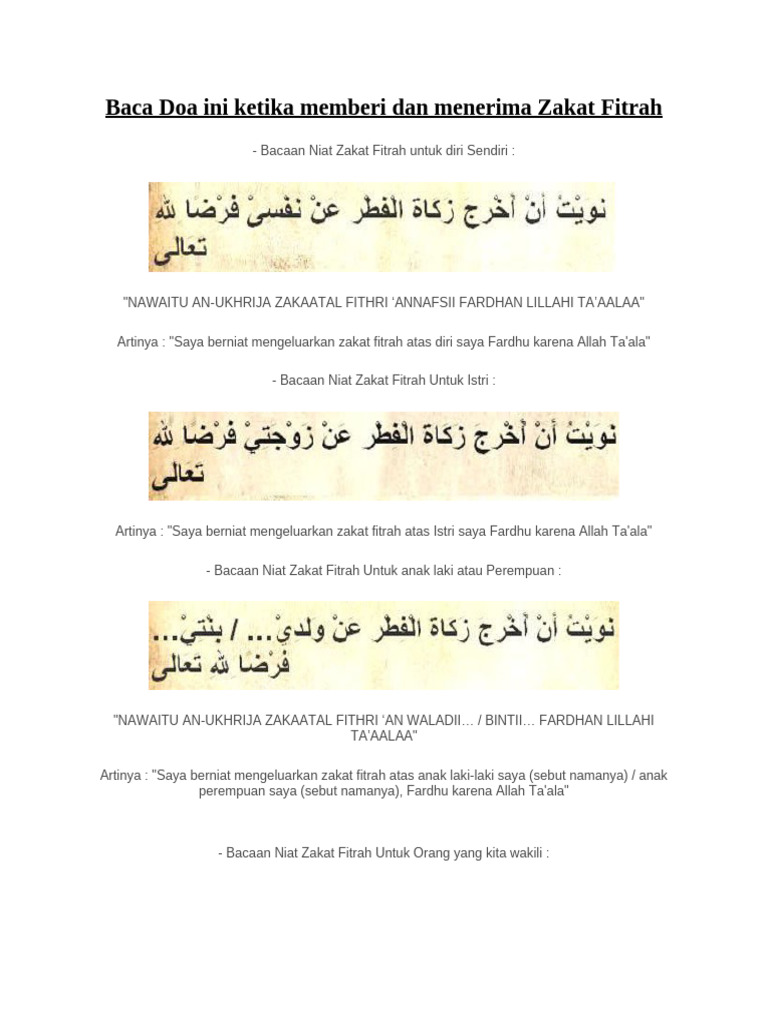 Baca Doa ini ketika memberi dan menerima Zakat Fitrah
- Bacaan Niat Zakat Fitrah untuk diri Sendiri :
نويْتُ أَنْ أُخْرِج زكاة الْفِطْر عنْ نفْسىْ فرْضًا لِلهِ
تعالى
"NAWAITU AN-UKHRIJA ZAKAATAL FITHRI ‘ANNAFSII FARDHAN LILLAHI TA’AALAA"
Artinya : "Saya berniat mengeluarkan zakat fitrah atas diri saya Fardhu karena Allah Ta'ala"
- Bacaan Niat Zakat Fitrah Untuk Istri :
نوَيْتُ أَنْ أُخْرِج زكاة الْفِطْر عَنْ زَوْجَتِيْ فَرْضًا لِلهِ
تَعَالى
Artinya : "Saya berniat mengeluarkan zakat fitrah atas Istri saya Fardhu karena Allah Ta'ala"
- Bacaan Niat Zakat Fitrah Untuk anak laki atau Perempuan :
نويْتُ أَنْ أُخْرِج زكاة الْفِطْر عَنْ ولدِيْ... / بِنْتِيْ...
فرْضًا لِلهِ تعَالى
"NAWAITU AN-UKHRIJA ZAKAATAL FITHRI ‘AN WALADII… / BINTII… FARDHAN LILLAHI
TA’AALAA"
Artinya : "Saya berniat mengeluarkan zakat fitrah atas anak laki-laki saya (sebut namanya) / anak
perempuan saya (sebut namanya), Fardhu karena Allah Ta'ala"
- Bacaan Niat Zakat Fitrah Untuk Orang yang kita wakili :